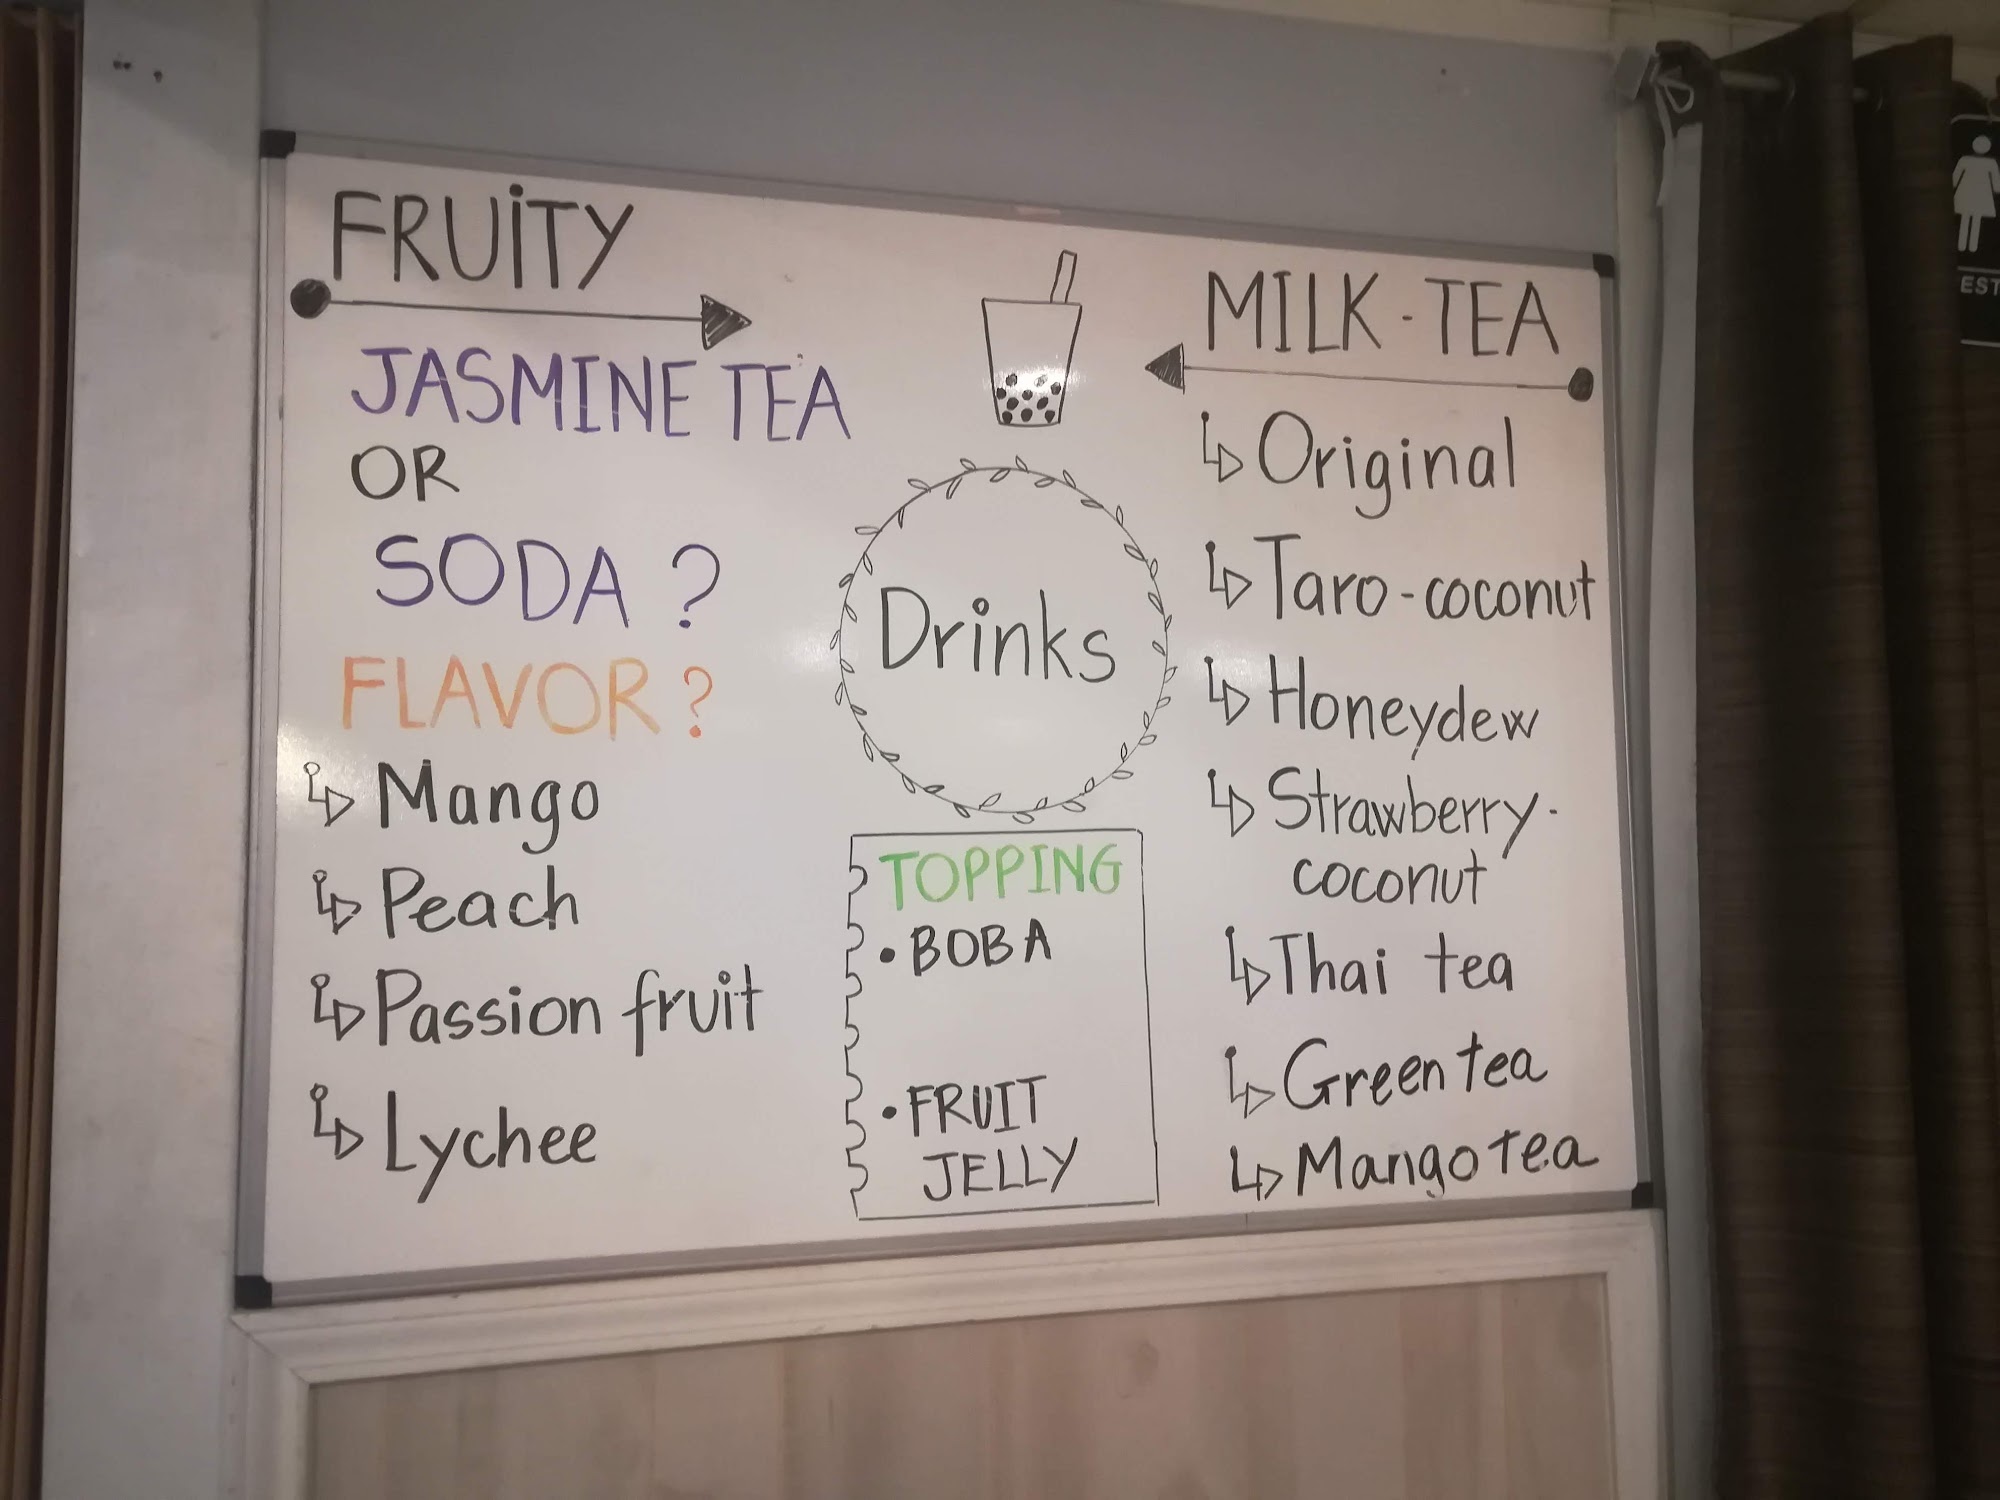 FRUITY
JASMINE TEA
OR
SODA ?
FLAVOR ?
Mango
Peach
Passion fruit
Lychee
Drinks
TOPPING
• BOBA
• FRUIT
JELLY
MILK - TEA
Original
Taro - coconut
Honeydew
Strawberry -
coconut
Thai tea
Green tea
Mango tea